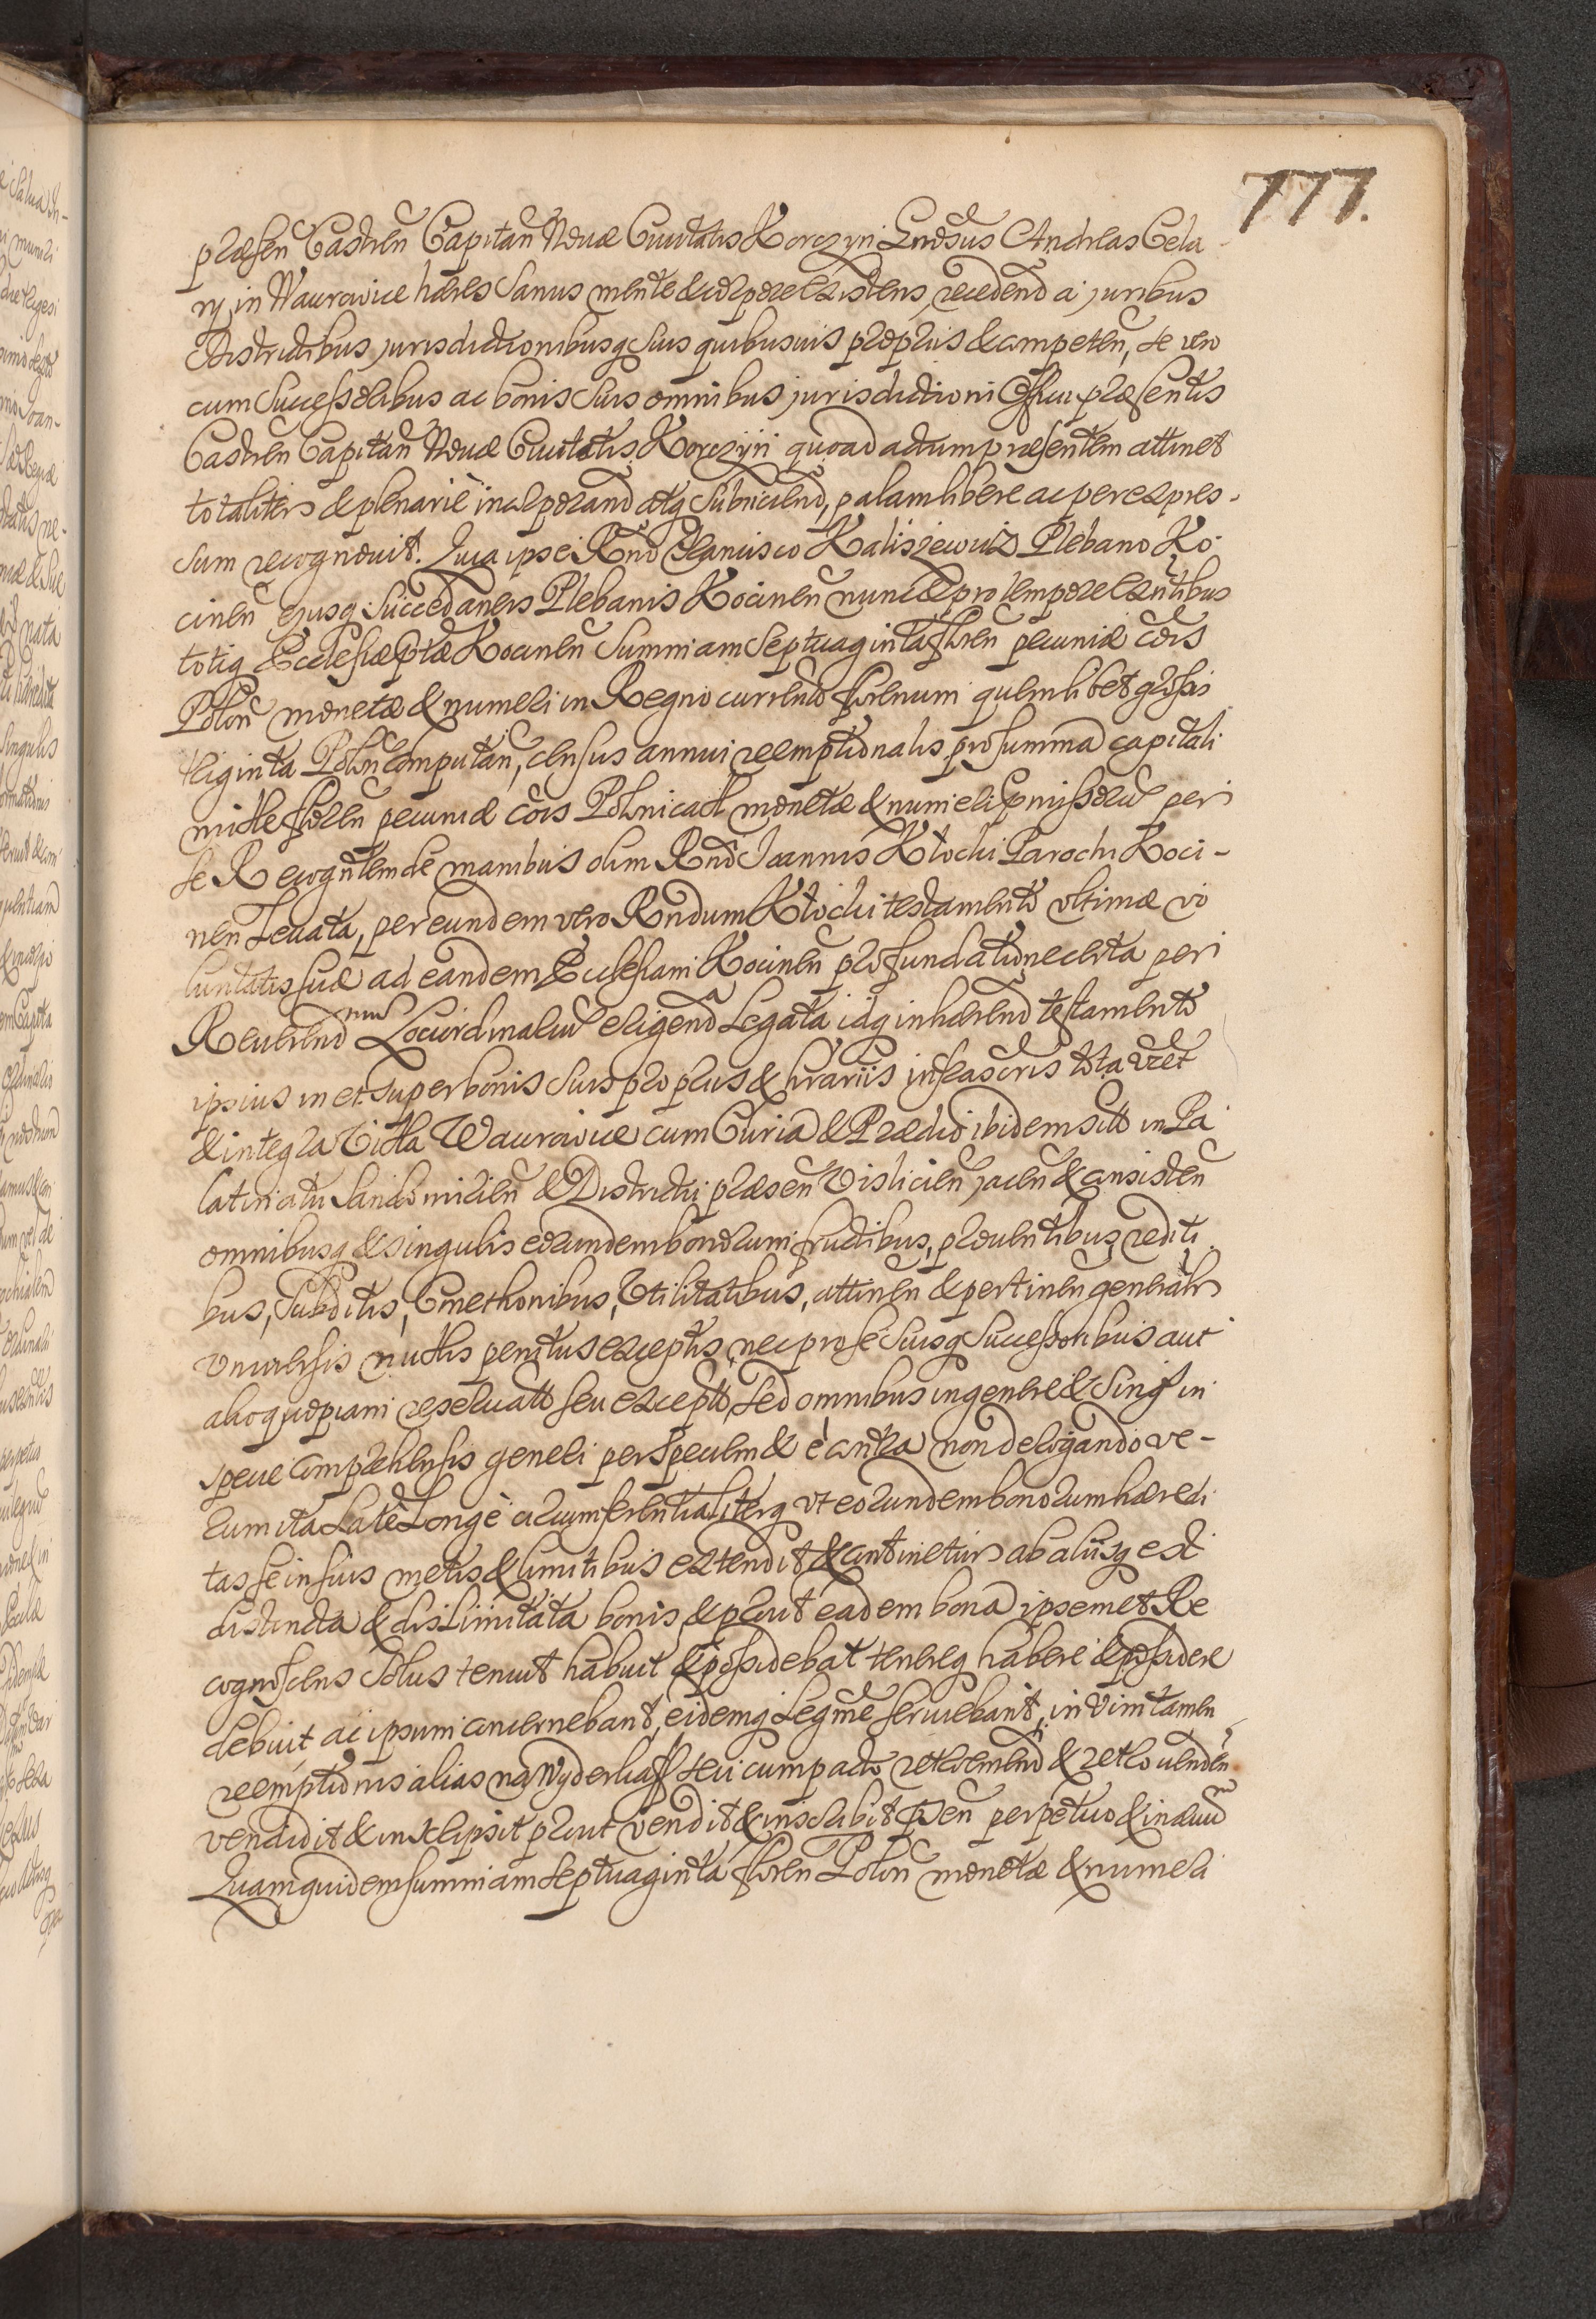 777.
præsen Castren Capitan Novæ Civitatis Korczyn Gnrosus Andreas Cela
ry in Wawrowice hæres sanus mente & corpore existens, recedend a juribus
Districtibus, jurisdictionibusq suis quibusuis proprijs & competen, se vero
cum successoribus ac bonis suis omnibus jurisdictioni Officij præsentis
Castren Capitan Novæ Civitatis Korczyn quoad actum præsentem attinet
totaliter & plenariè incorporand atq subiiciend, palam libere ac per expres-
sum recognovit. Quia ipse Rndo Francisco Kaliszewicz Plebano Ko-
cinen ejusq succedaneis Plebanis Kocinen nunc & pro tempore exntibus
totiq Ecclesiæ ptæ Kocinen Summam Septuaginta floren pecuniæ cois
Polon monetæ & numeri in Regno currend florenum quemlibet grossis
triginta Polon computan, census annui reemptionalis pro summa capitali
mille floren pecuniæ cois Polonicali monetæ & numeri pmissorum per
se Recogntem de manibus olim Rndi Joannis Klochi Parochi Koci-
nen Levata, per eundem vero Rndum Klochi testamento ultimæ vo
luntatis suæ ad eandem Ecclesiam Kocinen pro fundatione certa per
Reverendmum Loci Ordinarium erigend Legata idq inhærend testamento
ipsius in et super bonis suis proprijs & hrarijs infrascris tota vzet
& integra Villa Wawrowice cum Curia & Prædio ibidem sitt in Pa
latinatu Sandomirien & Districtu præsen Vislicien jacen & consisten
omnibusq & singulis eorundem bonorum fructibus, proventibus, rediti
bus, Subditis, Cmethonibus, Utilitatibus, attinen & pertinen genraliter
universis nullis penitus exceptis, nec pro se suisq successoribus aut
alioquopiam reservatt seu exceptt, sed omnibus in genere & Sing in
specie comprehensis generi per Speciem & è contra non derogando ve-
rum ita Latè Longè circumferentialiterq ut eorundem bonorum hæredi
tas se in suis metis & limitibus extendit & continetur ab alijsq est
distincta & dislimitata bonis, & prout eadem bona ipsemet Re
cognoscens solus tenuit habuit & possidebat tenereq habere & possidere
debuit ac ipsum concernebant, eidemq Legme serviebant, in vim tamen
reemptionis alias na Wyderkaff seu cum pacto rethroemend & rethrovenden
vendidit & inscripsit prout vendit & inscribit pñ perpetuo & in ævum
Quam quidem summam Septuaginta floren Polon monetæ & numeri